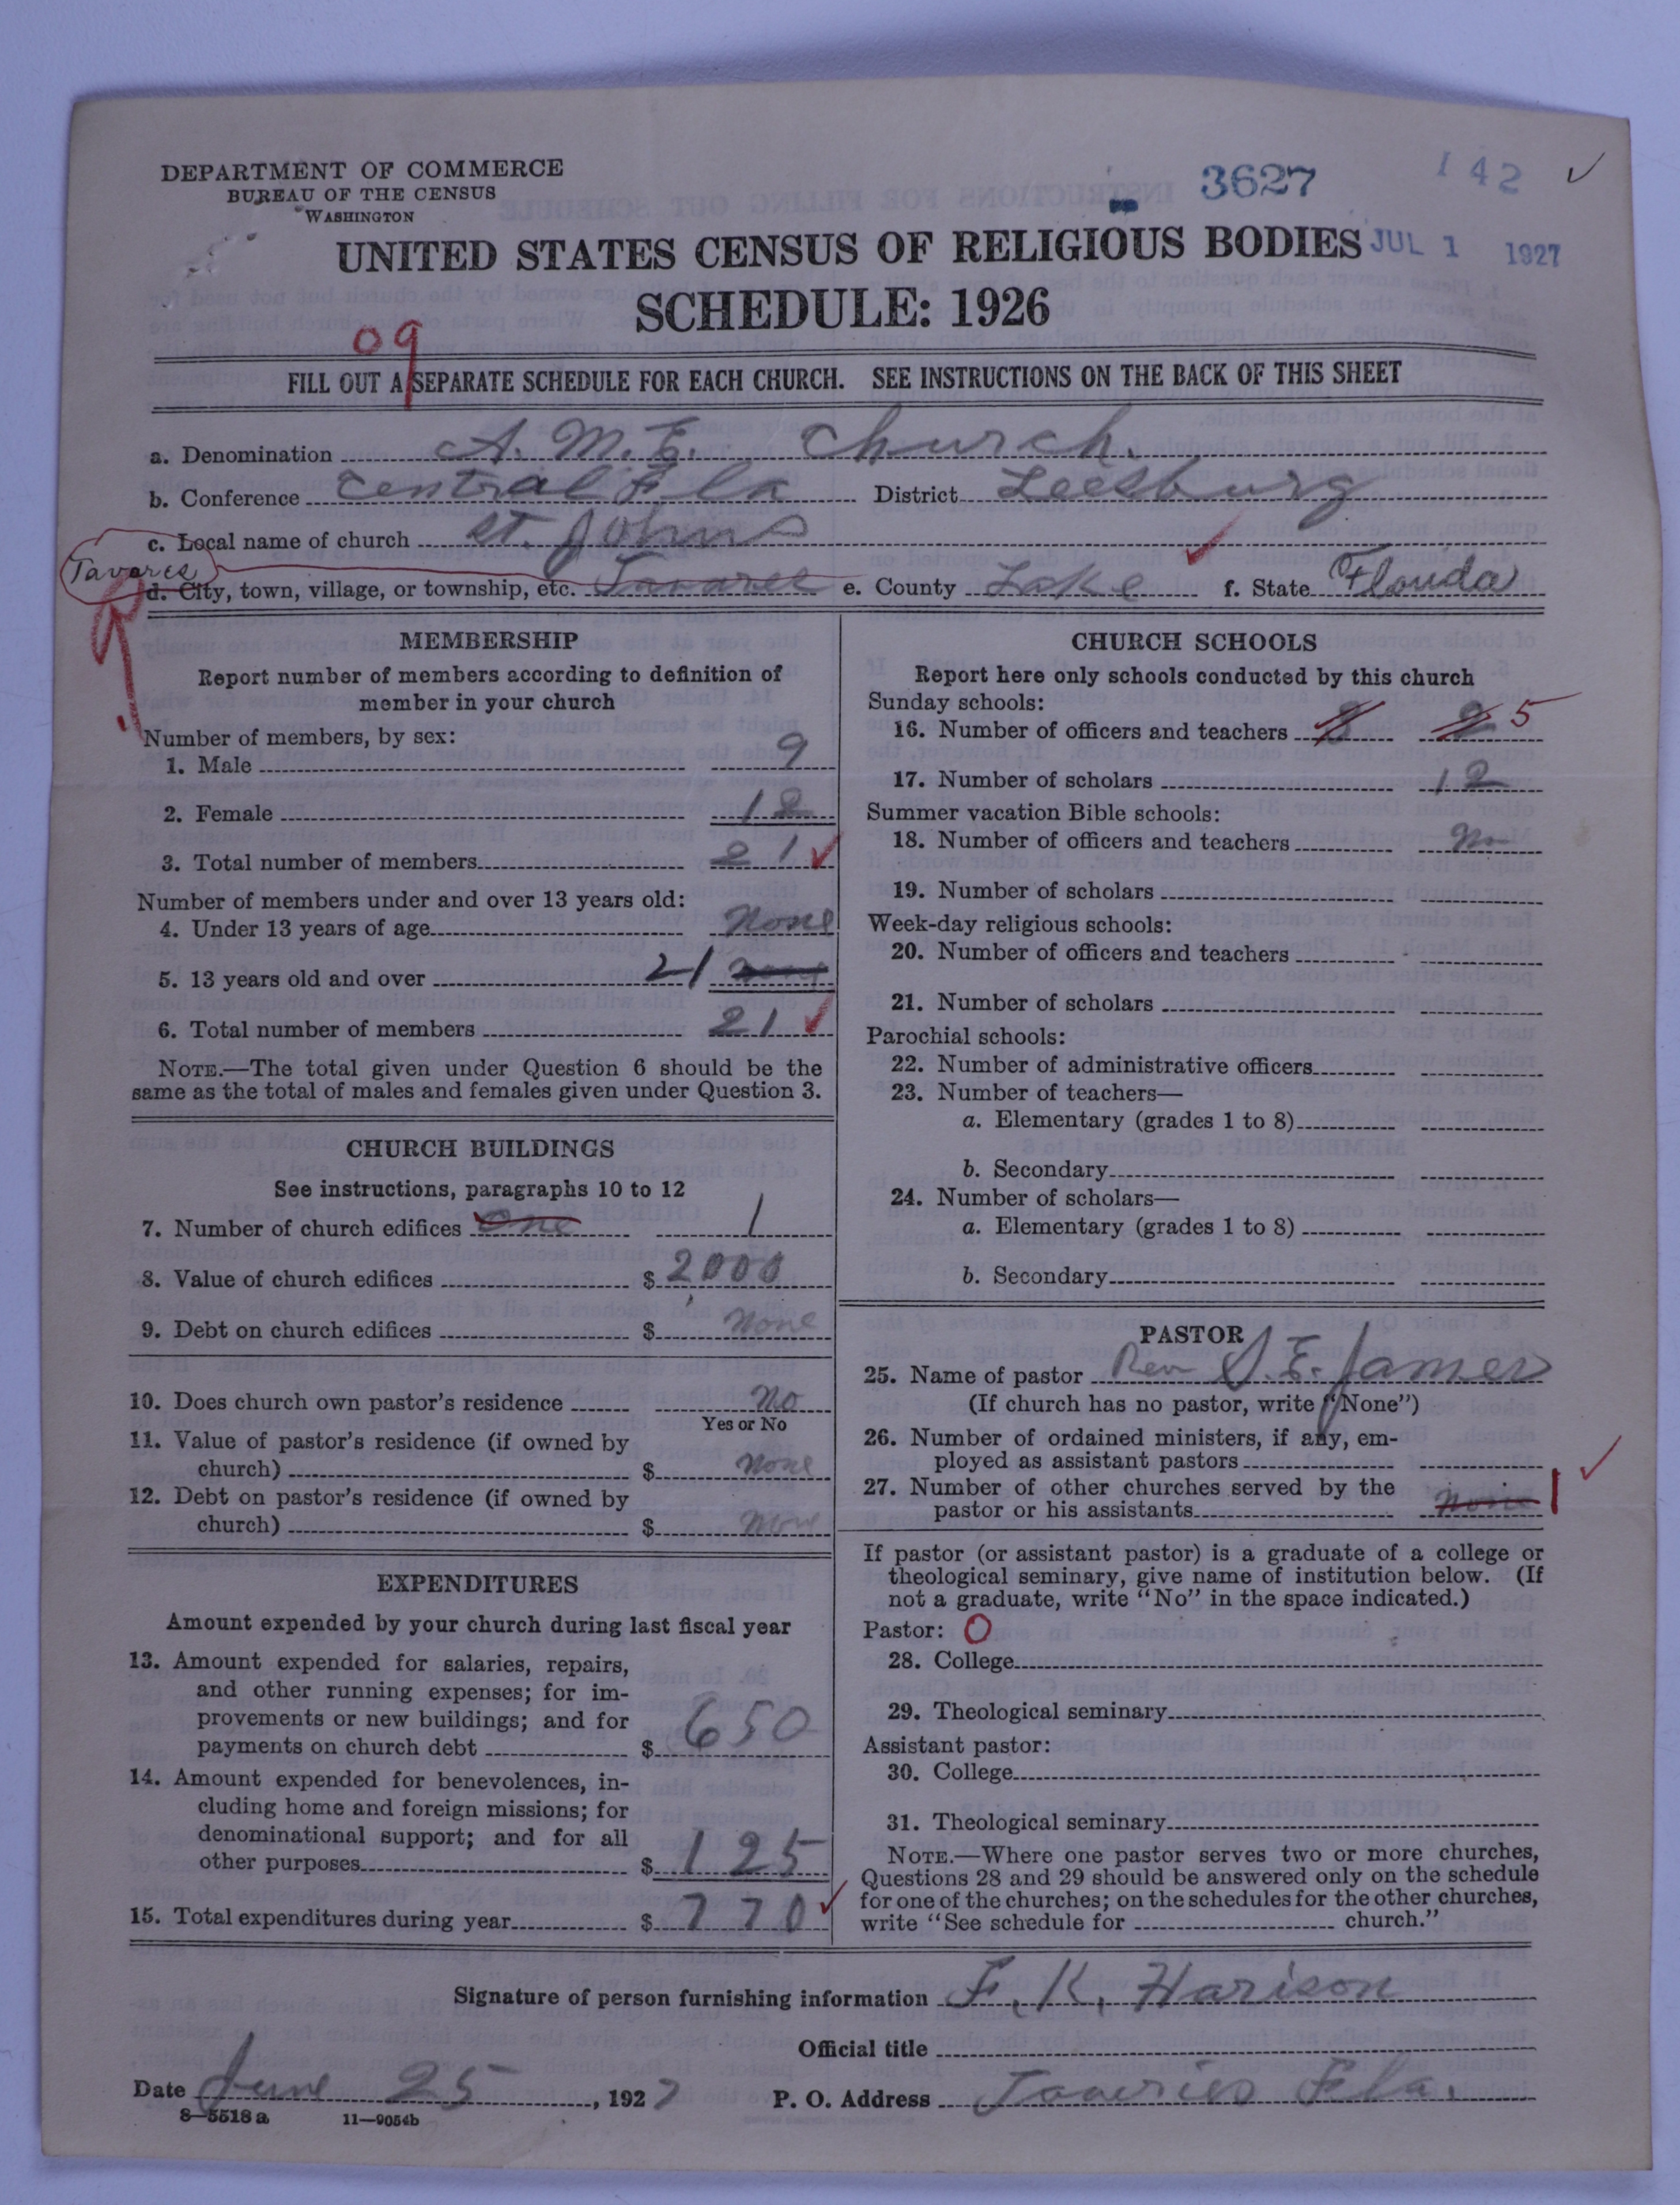 DEPARTMENT OF COMMERCE
BUREAU OF THE CENSUS
WASHINGTON
3627
142
UNITED STATES CENSUS OF RELIGIOUS BODIES
JUL 1 1927
SCHEDULE: 1926
09
FILL OUT A SEPARATE SCHEDULE FOR EACH CHURCH. SEE INSTRUCTIONS ON THE BACK OF THIS SHEET
a. Denomination A. M. E. Church.
b. Conference Central Fla District Leesburg
c. Local name of church St. Johns
Tavares
d. City, town, village, or township, etc. Tavares e. County Lake f. State Florida
MEMBERSHIP
Report number of members according to definition of
member in your church
Number of members, by sex:
1. Male 9
2. Female 12
3. Total number of members 21
Number of members under and over 13 years old:
4. Under 13 years of age None
5. 13 years old and over 21
6. Total number of members 21
NOTE.—The total given under Question 6 should be the
same as the total of males and females given under Question 3.
CHURCH BUILDINGS
See instructions, paragraphs 10 to 12
7. Number of church edifices One 1
8. Value of church edifices $ 2000
9. Debt on church edifices $ None
10. Does church own pastor's residence No
Yes or No
11. Value of pastor's residence (if owned by
church) $ None
12. Debt on pastor's residence (if owned by
church) $ None
EXPENDITURES
Amount expended by your church during last fiscal year
13. Amount expended for salaries, repairs,
and other running expenses; for im-
provements or new buildings; and for
payments on church debt $ 650
14. Amount expended for benevolences, in-
cluding home and foreign missions; for
denominational support; and for all
other purposes $ 125
15. Total expenditures during year $ 770
CHURCH SCHOOLS
Report here only schools conducted by this church
Sunday schools:
16. Number of officers and teachers 3 2 5
17. Number of scholars 12
Summer vacation Bible schools:
18. Number of officers and teachers No
19. Number of scholars
Week-day religious schools:
20. Number of officers and teachers
21. Number of scholars
Parochial schools:
22. Number of administrative officers
23. Number of teachers—
a. Elementary (grades 1 to 8)
b. Secondary
24. Number of scholars—
a. Elementary (grades 1 to 8)
b. Secondary
PASTOR
25. Name of pastor Rev S. E. James
(If church has no pastor, write "None")
26. Number of ordained ministers, if any, em-
ployed as assistant pastors
27. Number of other churches served by the
pastor or his assistants None 1
If pastor (or assistant pastor) is a graduate of a college or
theological seminary, give name of institution below. (If
not a graduate, write "No" in the space indicated.)
Pastor: O
28. College
29. Theological seminary
Assistant pastor:
30. College
31. Theological seminary
NOTE.—Where one pastor serves two or more churches,
Questions 28 and 29 should be answered only on the schedule
for one of the churches; on the schedules for the other churches,
write "See schedule for church."
Signature of person furnishing information F. K. Harison
Official title
Date June 25, 1927 P. O. Address Taveries Fla.
8—5518a 11—9054b